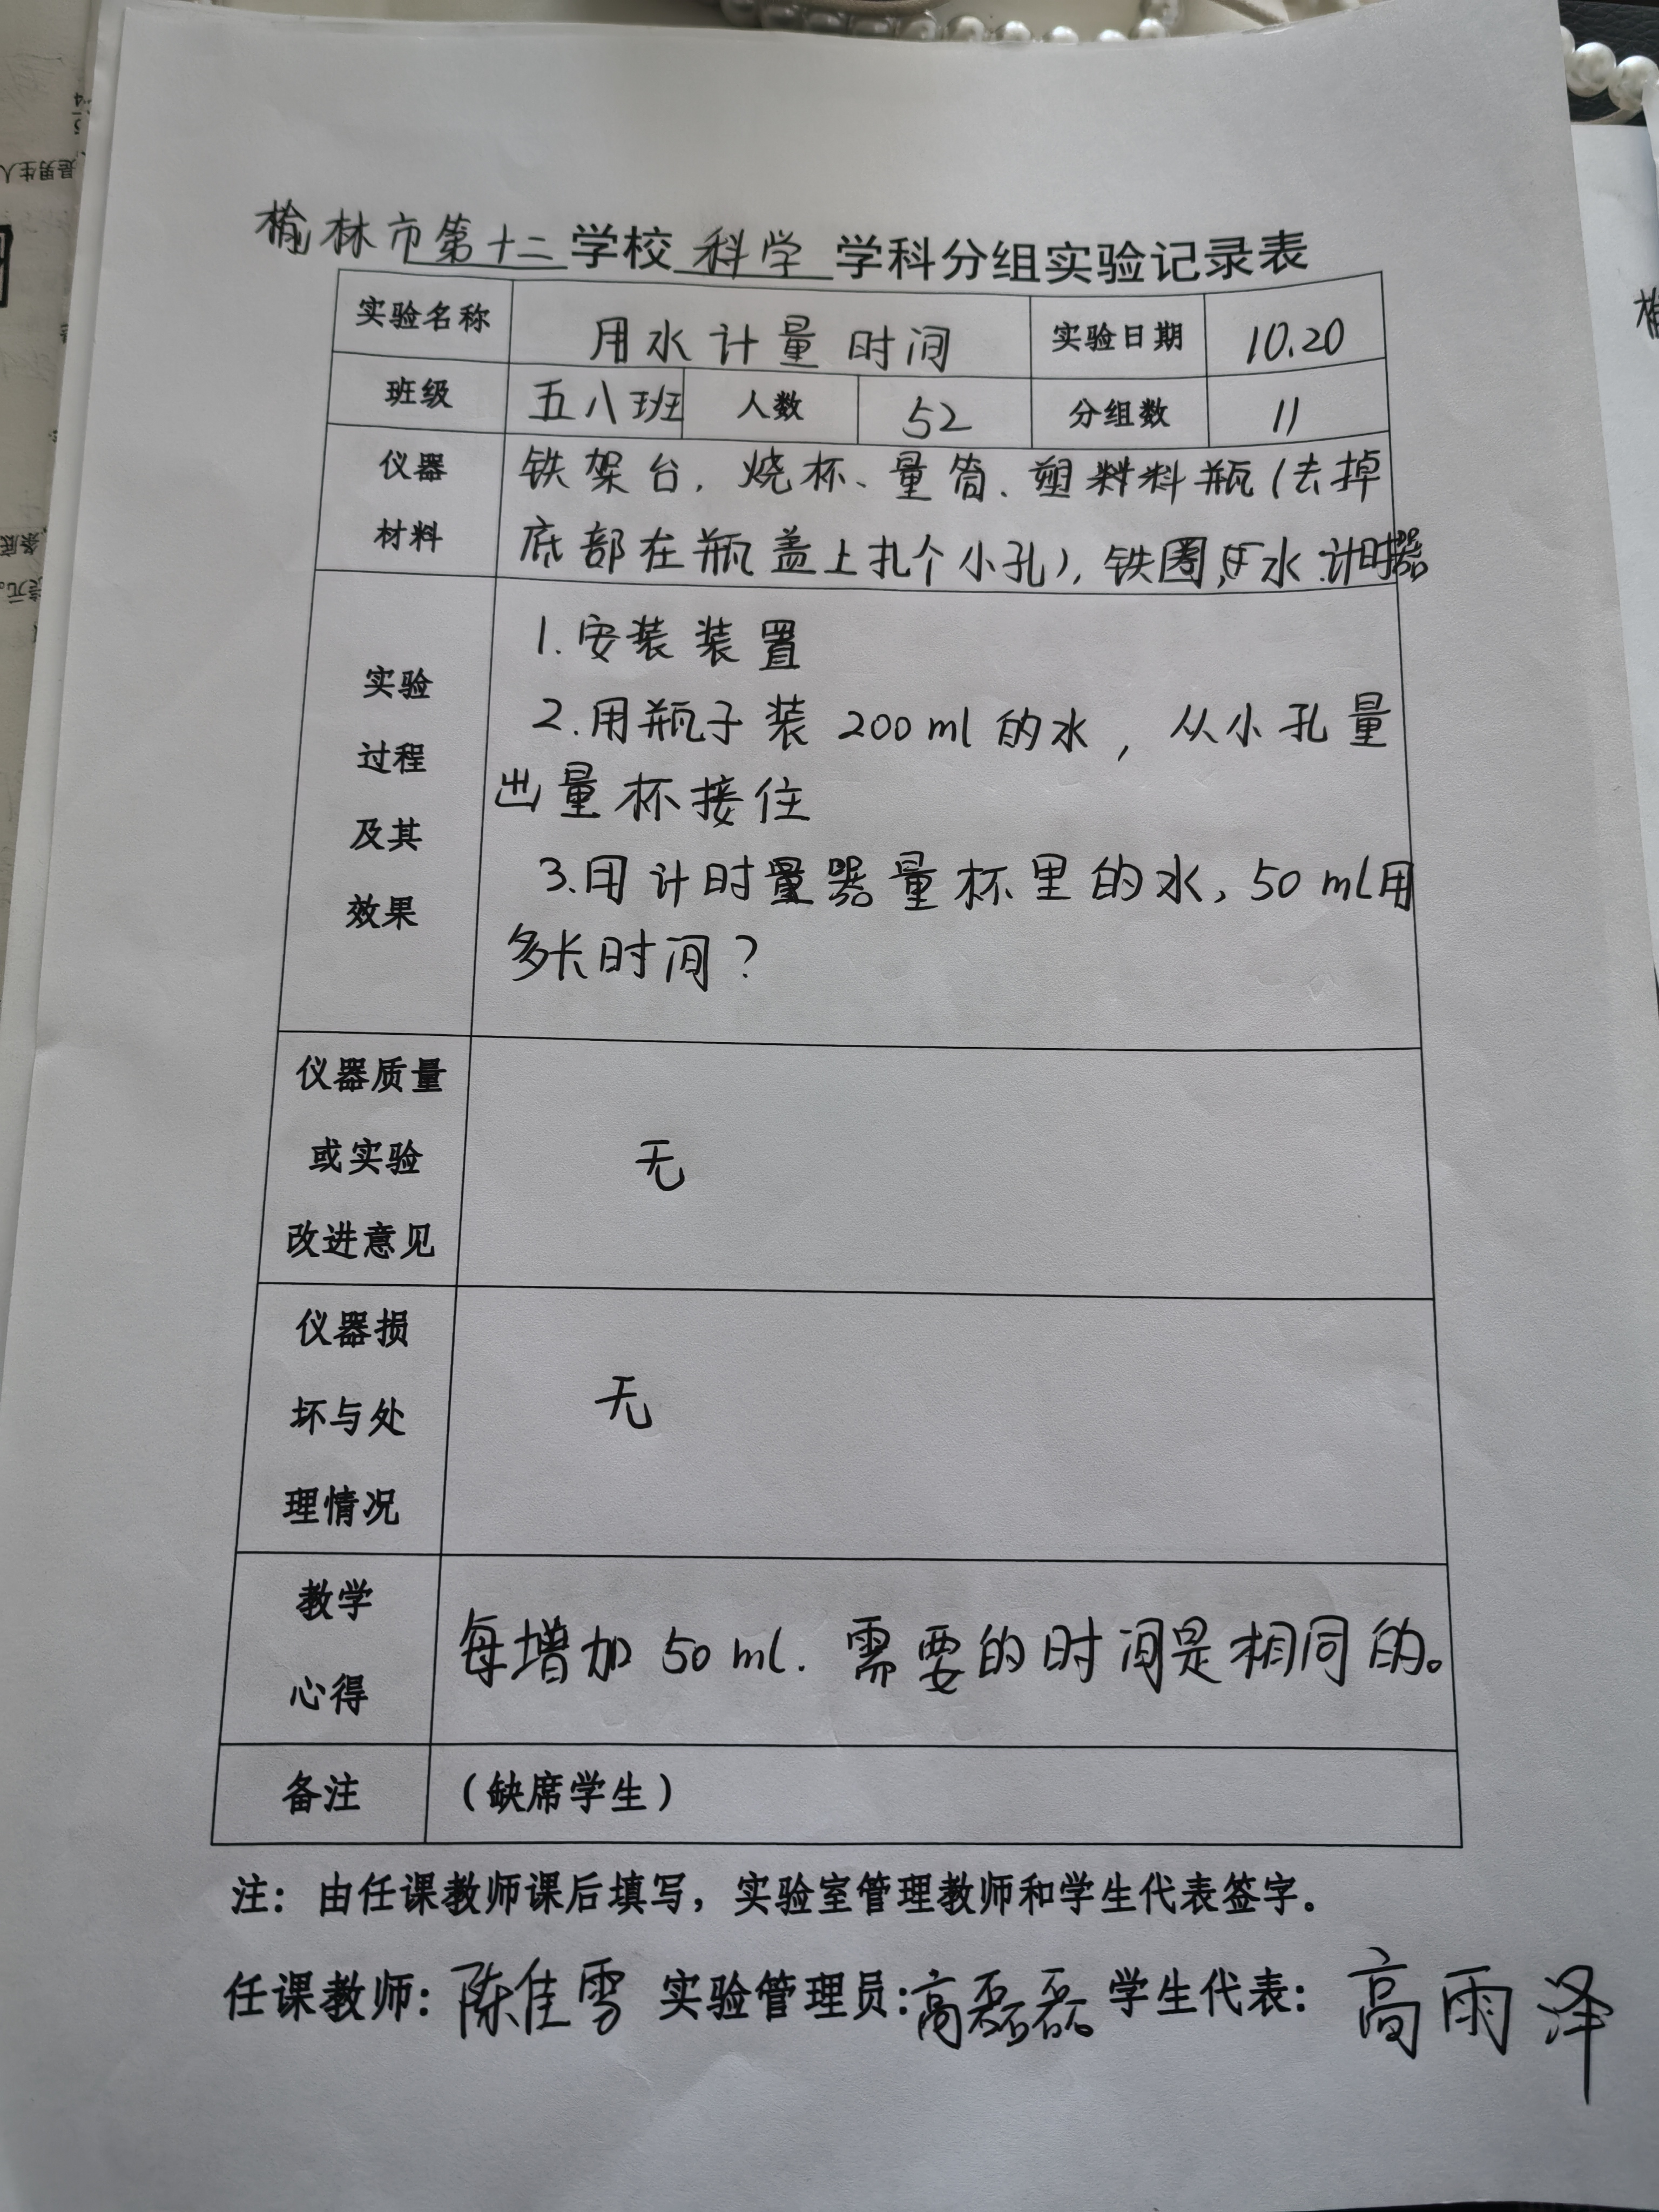 榆林市第十二学校 科学 学科分组实验记录表
实验名称 用水计量时间 实验日期 10.20
班级 五八班 人数 52 分组数 11
仪器 铁架台、烧杯、量筒、塑料料瓶(去掉
材料 底部在瓶盖上扎个小孔),铁圈, 水.计时器
1.安装装置
实验
2.用瓶子装200ml的水,从小孔量
过程
出量杯接住
及其
3.用计时量器量杯里的水,50ml用
效果
多长时间?
仪器质量
或实验 无
改进意见
仪器损
坏与处 无
理情况
教学
每增加50ml.需要的时间是相同的。
心得
备注 (缺席学生)
注:由任课教师课后填写,实验室管理教师和学生代表签字。
任课教师:陈佳雪 实验管理员:高磊磊 学生代表:高雨泽
是男生人